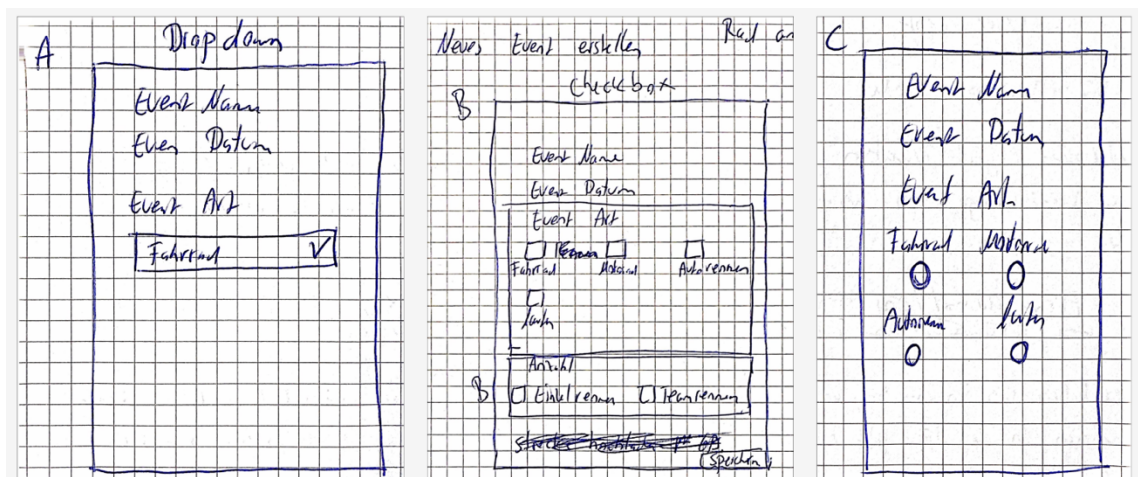 A
Dropdown
Event Name
Even Datum
Event Art
Fahrrad
Neues Event erstellen
Checkbox
B
Event Name
Event Datum
Event Art
Fahrrad Motorrad Autorennen
Anzahl
B
Einzelrennen Teamrennen
Speichern
C
Event Name
Event Datum
Event Art
Fahrrad Motorrad